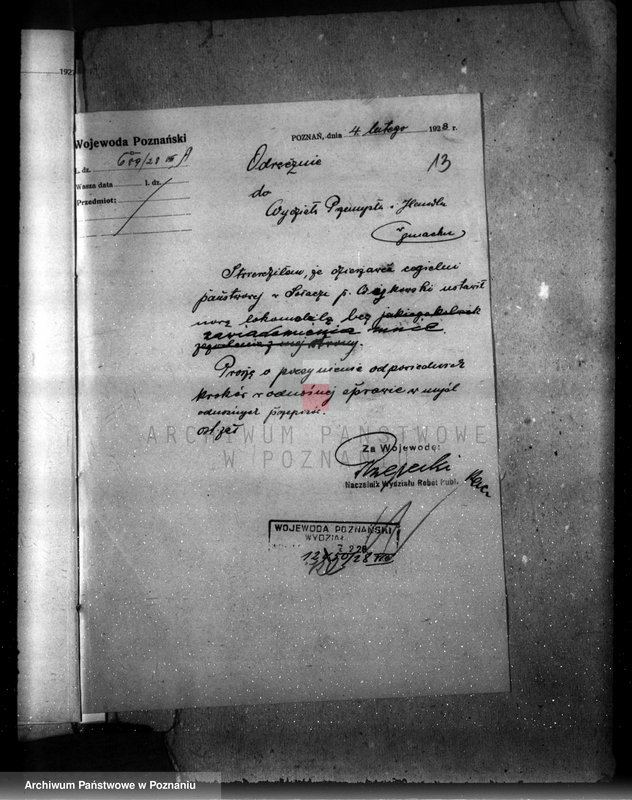 192
Wojewoda Poznański
POZNAŃ, dnia 4 lutego 1928 r.
L. dz. 689/28 III A
Wasza data l. dz.
Przedmiot:
Odręcznie
13
do
Wydziału Przemysłu i Handlu
w gmachu
Stwierdziłem, że dzierżawca cegielni
państwowej w p. ustawił
nową lokomobilę bez jakiegokolwiek
zawiadomienia mnie
zezwolenia z mej strony.
Proszę o poczynienie odpowiednich
kroków w odnośnej sprawie w myśl
odnośnych przepisów.
ARCHIWUM PAŃSTWOWE
W POZNANIU
Za Wojewodę:
Naczelnik Wydziału Robót Publ.
WOJEWODA POZNAŃSKI
WYDZIAŁ
Archiwum Państwowe w Poznaniu